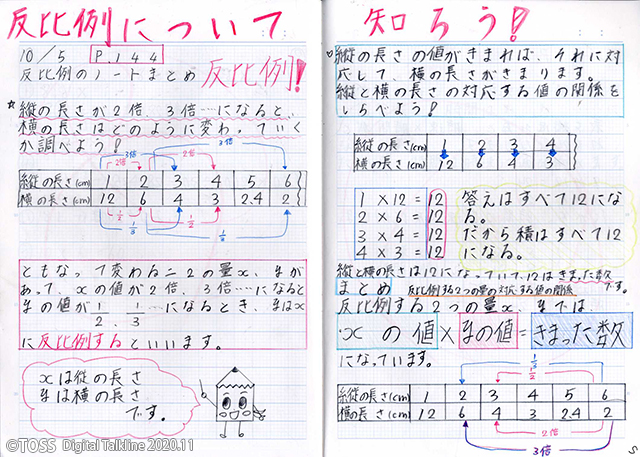 反比例について
10/5 P.144
反比例のノートまとめ 反比例!
☆縦の長さが2倍、3倍…になると、
横の長さはどのように変わっていく
か調べよう!
3倍
3倍
2倍 2倍
縦の長さ(cm) 1 2 3 4 5 6
横の長さ(cm) 12 6 4 3 2.4 2
1/2 1/2
1/3
1/3
ともなって変わる二2の量x、yが
あって、xの値が2倍、3倍…になると
yの値が1/2、1/3…になるとき、yはx
に反比例するといいます。
xは縦の長さ
yは横の長さ
です。
©TOSS Digital Talkline 2020.11
知ろう!
♡縦の長さの値がきまれば、それに対
応して、横の長さがきまります。
縦と横の長さの対応する値の関係を
しらべよう!
縦の長さ(cm) 1 2 3 4
横の長さ(cm) 12 6 4 3
1×12=12
2×6=12
3×4=12
4×3=12
答えはすべて12にな
る。
だから積はすべて12
になる。
縦と横の長さは12になっていて、12はきまった数
です。
まとめ 反比例する2つの量の対応する値の関係
反比例する2つの量x、yでは、
・xの値×yの値=きまった数
になっています。
1/3
1/2
縦の長さ(cm) 1 2 3 4 5 6
横の長さ(cm) 12 6 4 3 2.4 2
2倍
3倍